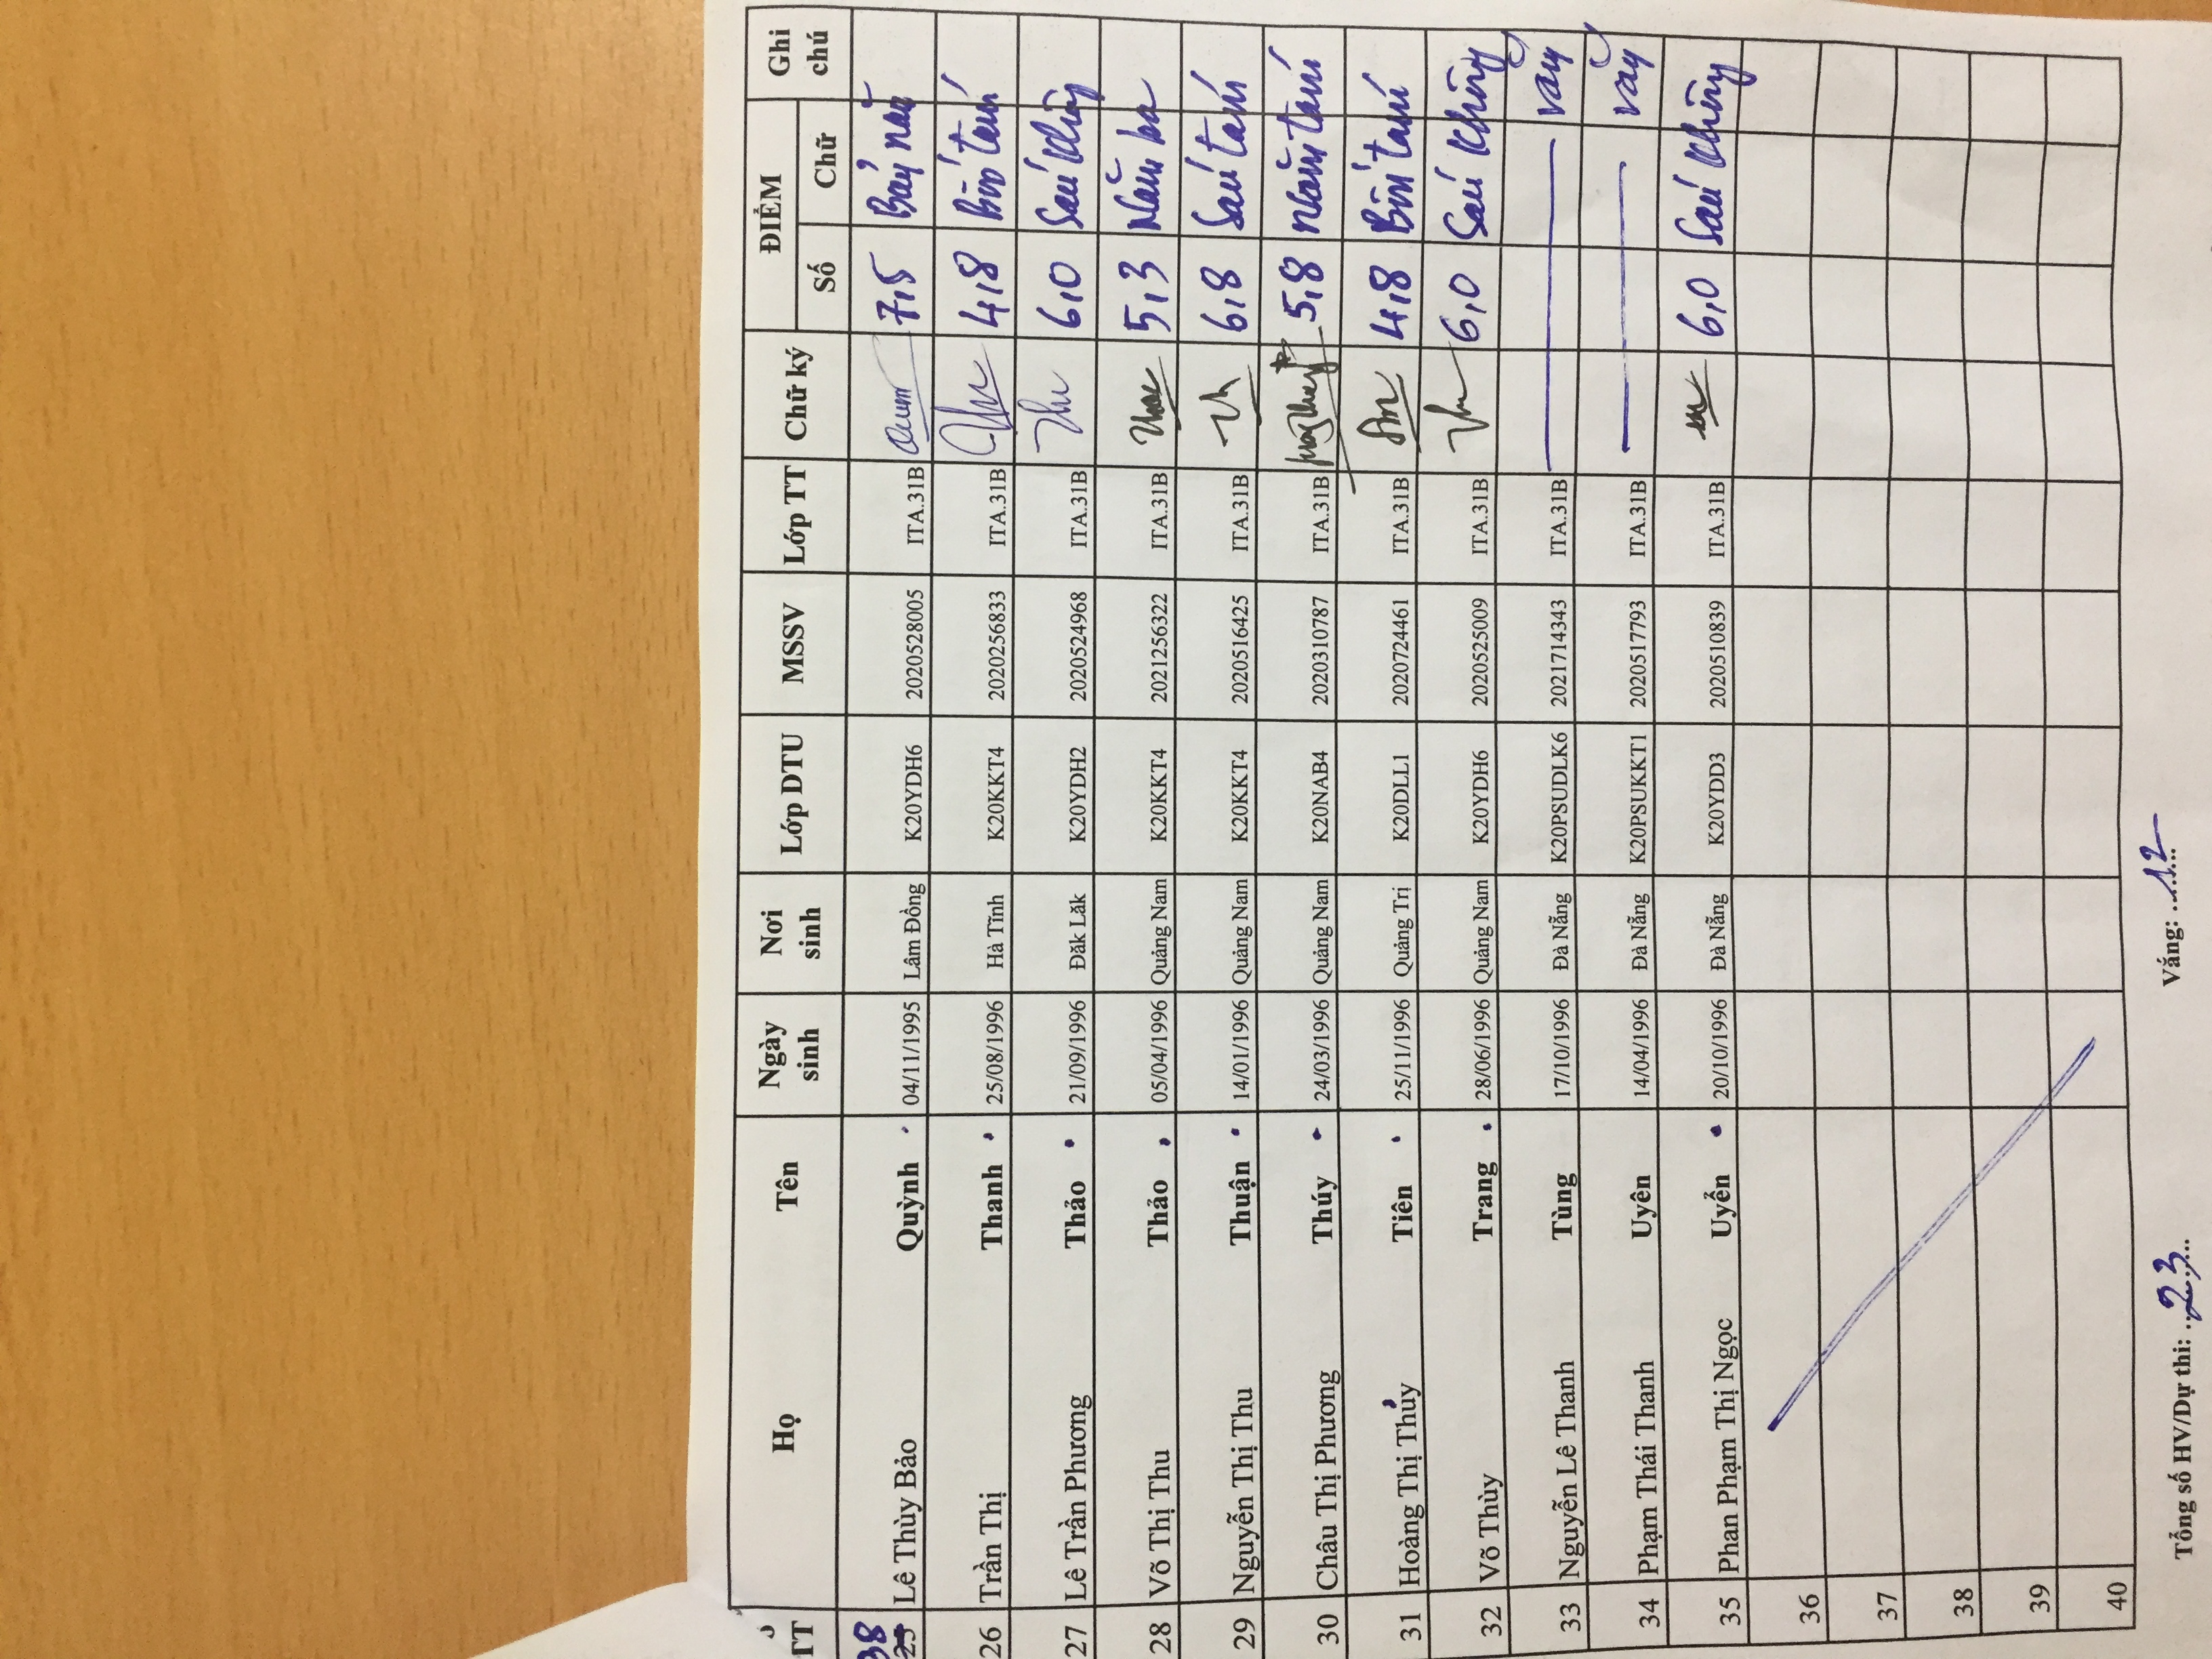 TT Họ Tên Ngày sinh Nơi sinh Lớp DTU MSSV Lớp TT Chữ ký ĐIỂM Ghi chú
Số Chữ
38
25 Lê Thùy Bảo Quỳnh 04/11/1995 Lâm Đồng K20YDH6 2020528005 ITA.31B 7,5 Bảy năm
26 Trần Thị Thanh 25/08/1996 Hà Tĩnh K20KKT4 2020256833 ITA.31B 4,8 Bốn tám
27 Lê Trần Phương Thảo 21/09/1996 Đăk Lăk K20YDH2 2020524968 ITA.31B 6,0 Sáu không
28 Võ Thị Thu Thảo 05/04/1996 Quảng Nam K20KKT4 2021256322 ITA.31B 5,3 Năm ba
29 Nguyễn Thị Thu Thuận 14/01/1996 Quảng Nam K20KKT4 2020516425 ITA.31B 6,8 Sáu tám
30 Châu Thị Phương Thúy 24/03/1996 Quảng Nam K20NAB4 2020310787 ITA.31B 5,8 Năm tám
31 Hoàng Thị Thủy Tiên 25/11/1996 Quảng Trị K20DLL1 2020724461 ITA.31B 4,8 Bốn tám
32 Võ Thùy Trang 28/06/1996 Quảng Nam K20YDH6 2020525009 ITA.31B 6,0 Sáu không
33 Nguyễn Lê Thanh Tùng 17/10/1996 Đà Nẵng K20PSUDLK6 2021714343 ITA.31B Vắng
34 Phạm Thái Thanh Uyên 14/04/1996 Đà Nẵng K20PSUKKT1 2020517793 ITA.31B Vắng
35 Phan Phạm Thị Ngọc Uyển 20/10/1996 Đà Nẵng K20YDD3 2020510839 ITA.31B 6,0 Sáu không
36
37
38
39
40
Tổng số HV/Dự thi: 23 Vắng: 12